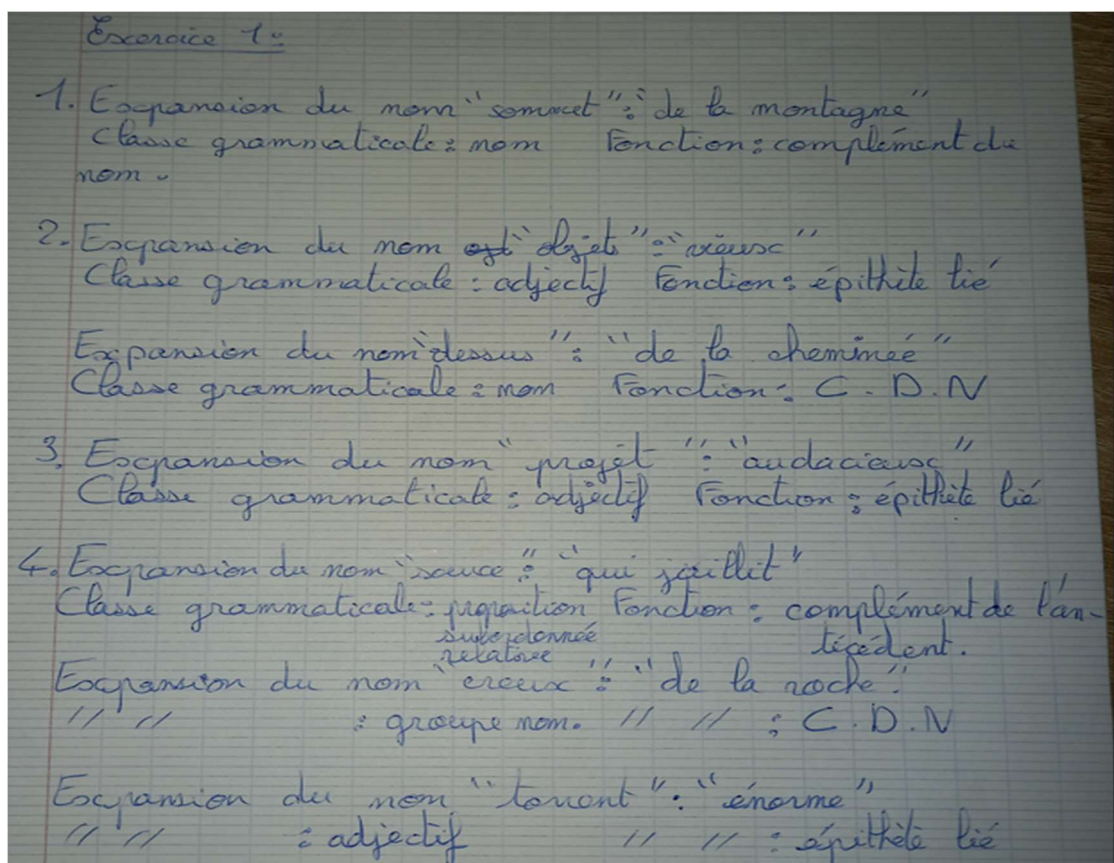 Exercice 1:
1. Expansion du nom "sommet": "de la montagne"
Classe grammaticale: nom Fonction: complément du
nom.
2. Expansion du nom "objet": "vieux"
Classe grammaticale: adjectif Fonction: épithète lié
Expansion du nom "dessus": "de la cheminée"
Classe grammaticale: nom Fonction: C.D.N
3. Expansion du nom "projet": "audacieux"
Classe grammaticale: adjectif Fonction: épithète lié
4. Expansion du nom "source": "qui jaillit"
Classe grammaticale: proposition Fonction: complément de l'an-
subordonnée técédent.
relative
Expansion du nom "creux": "de la roche".
// // : groupe nom. // // : C.D.N
Expansion du nom "torrent": "énorme"
// // : adjectif // // : épithète lié